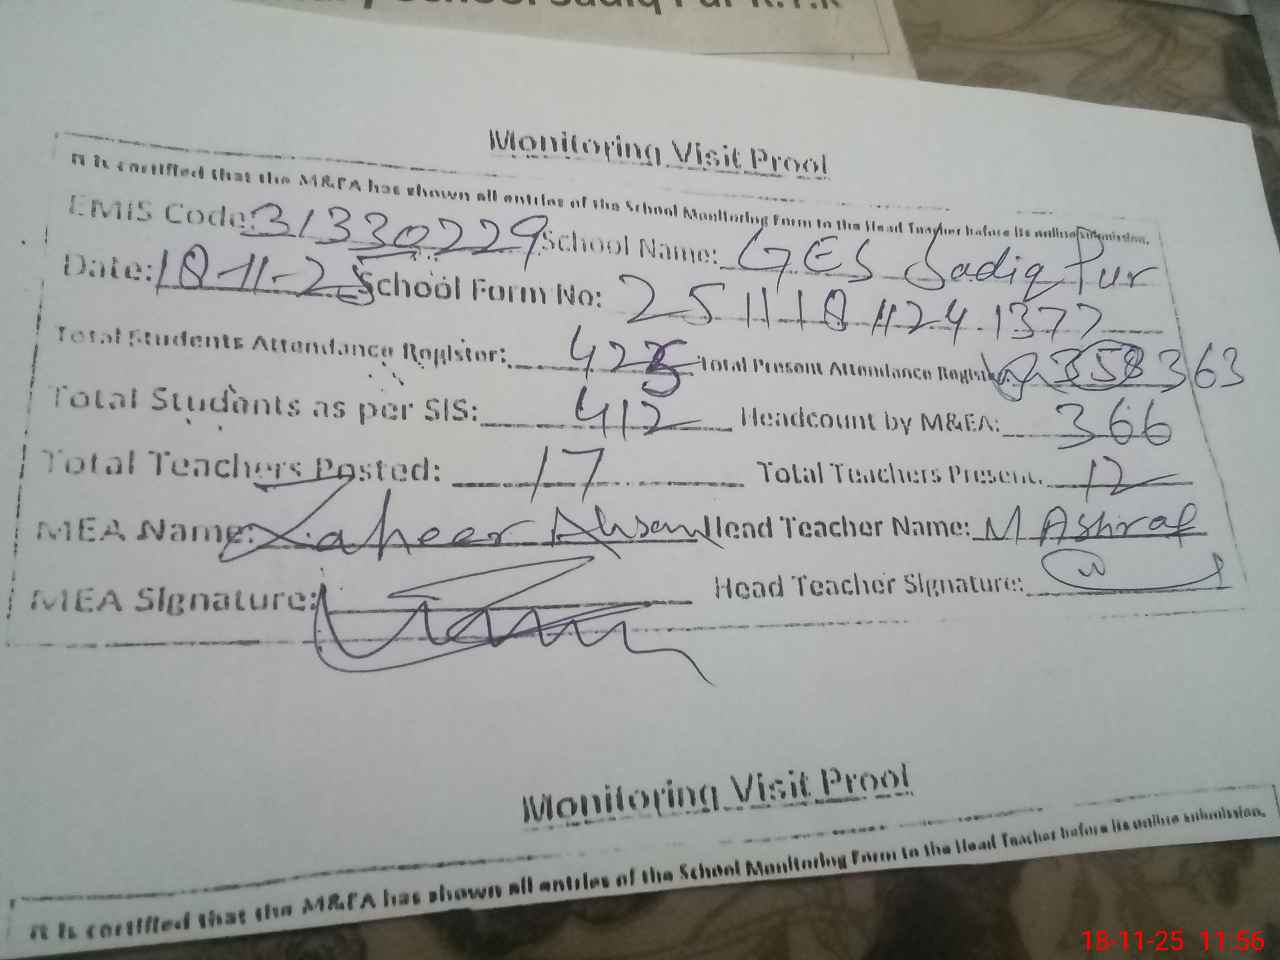 Monitoring Visit Proof
It is certified that the M&EA has shown all entries of the School Monitoring Form to the Head Teacher before its online submission.
EMIS Code: 31330229 School Name: GES Sadiq Pur
Date: 18-11-25 School Form No: 25111811241377
Total Students Attendance Register: 425 Total Present Attendance Register 358 363
Total Students as per SIS: 412 Headcount by M&EA: 366
Total Teachers Posted: 17 Total Teachers Present. 12
MEA Name: Zaheer Ahsan Head Teacher Name: M Ashraf
MEA Signature: Head Teacher Signature:
Monitoring Visit Proof
It is certified that the M&EA has shown all entries of the School Monitoring Form to the Head Teacher before its online submission.
18-11-25 11:56